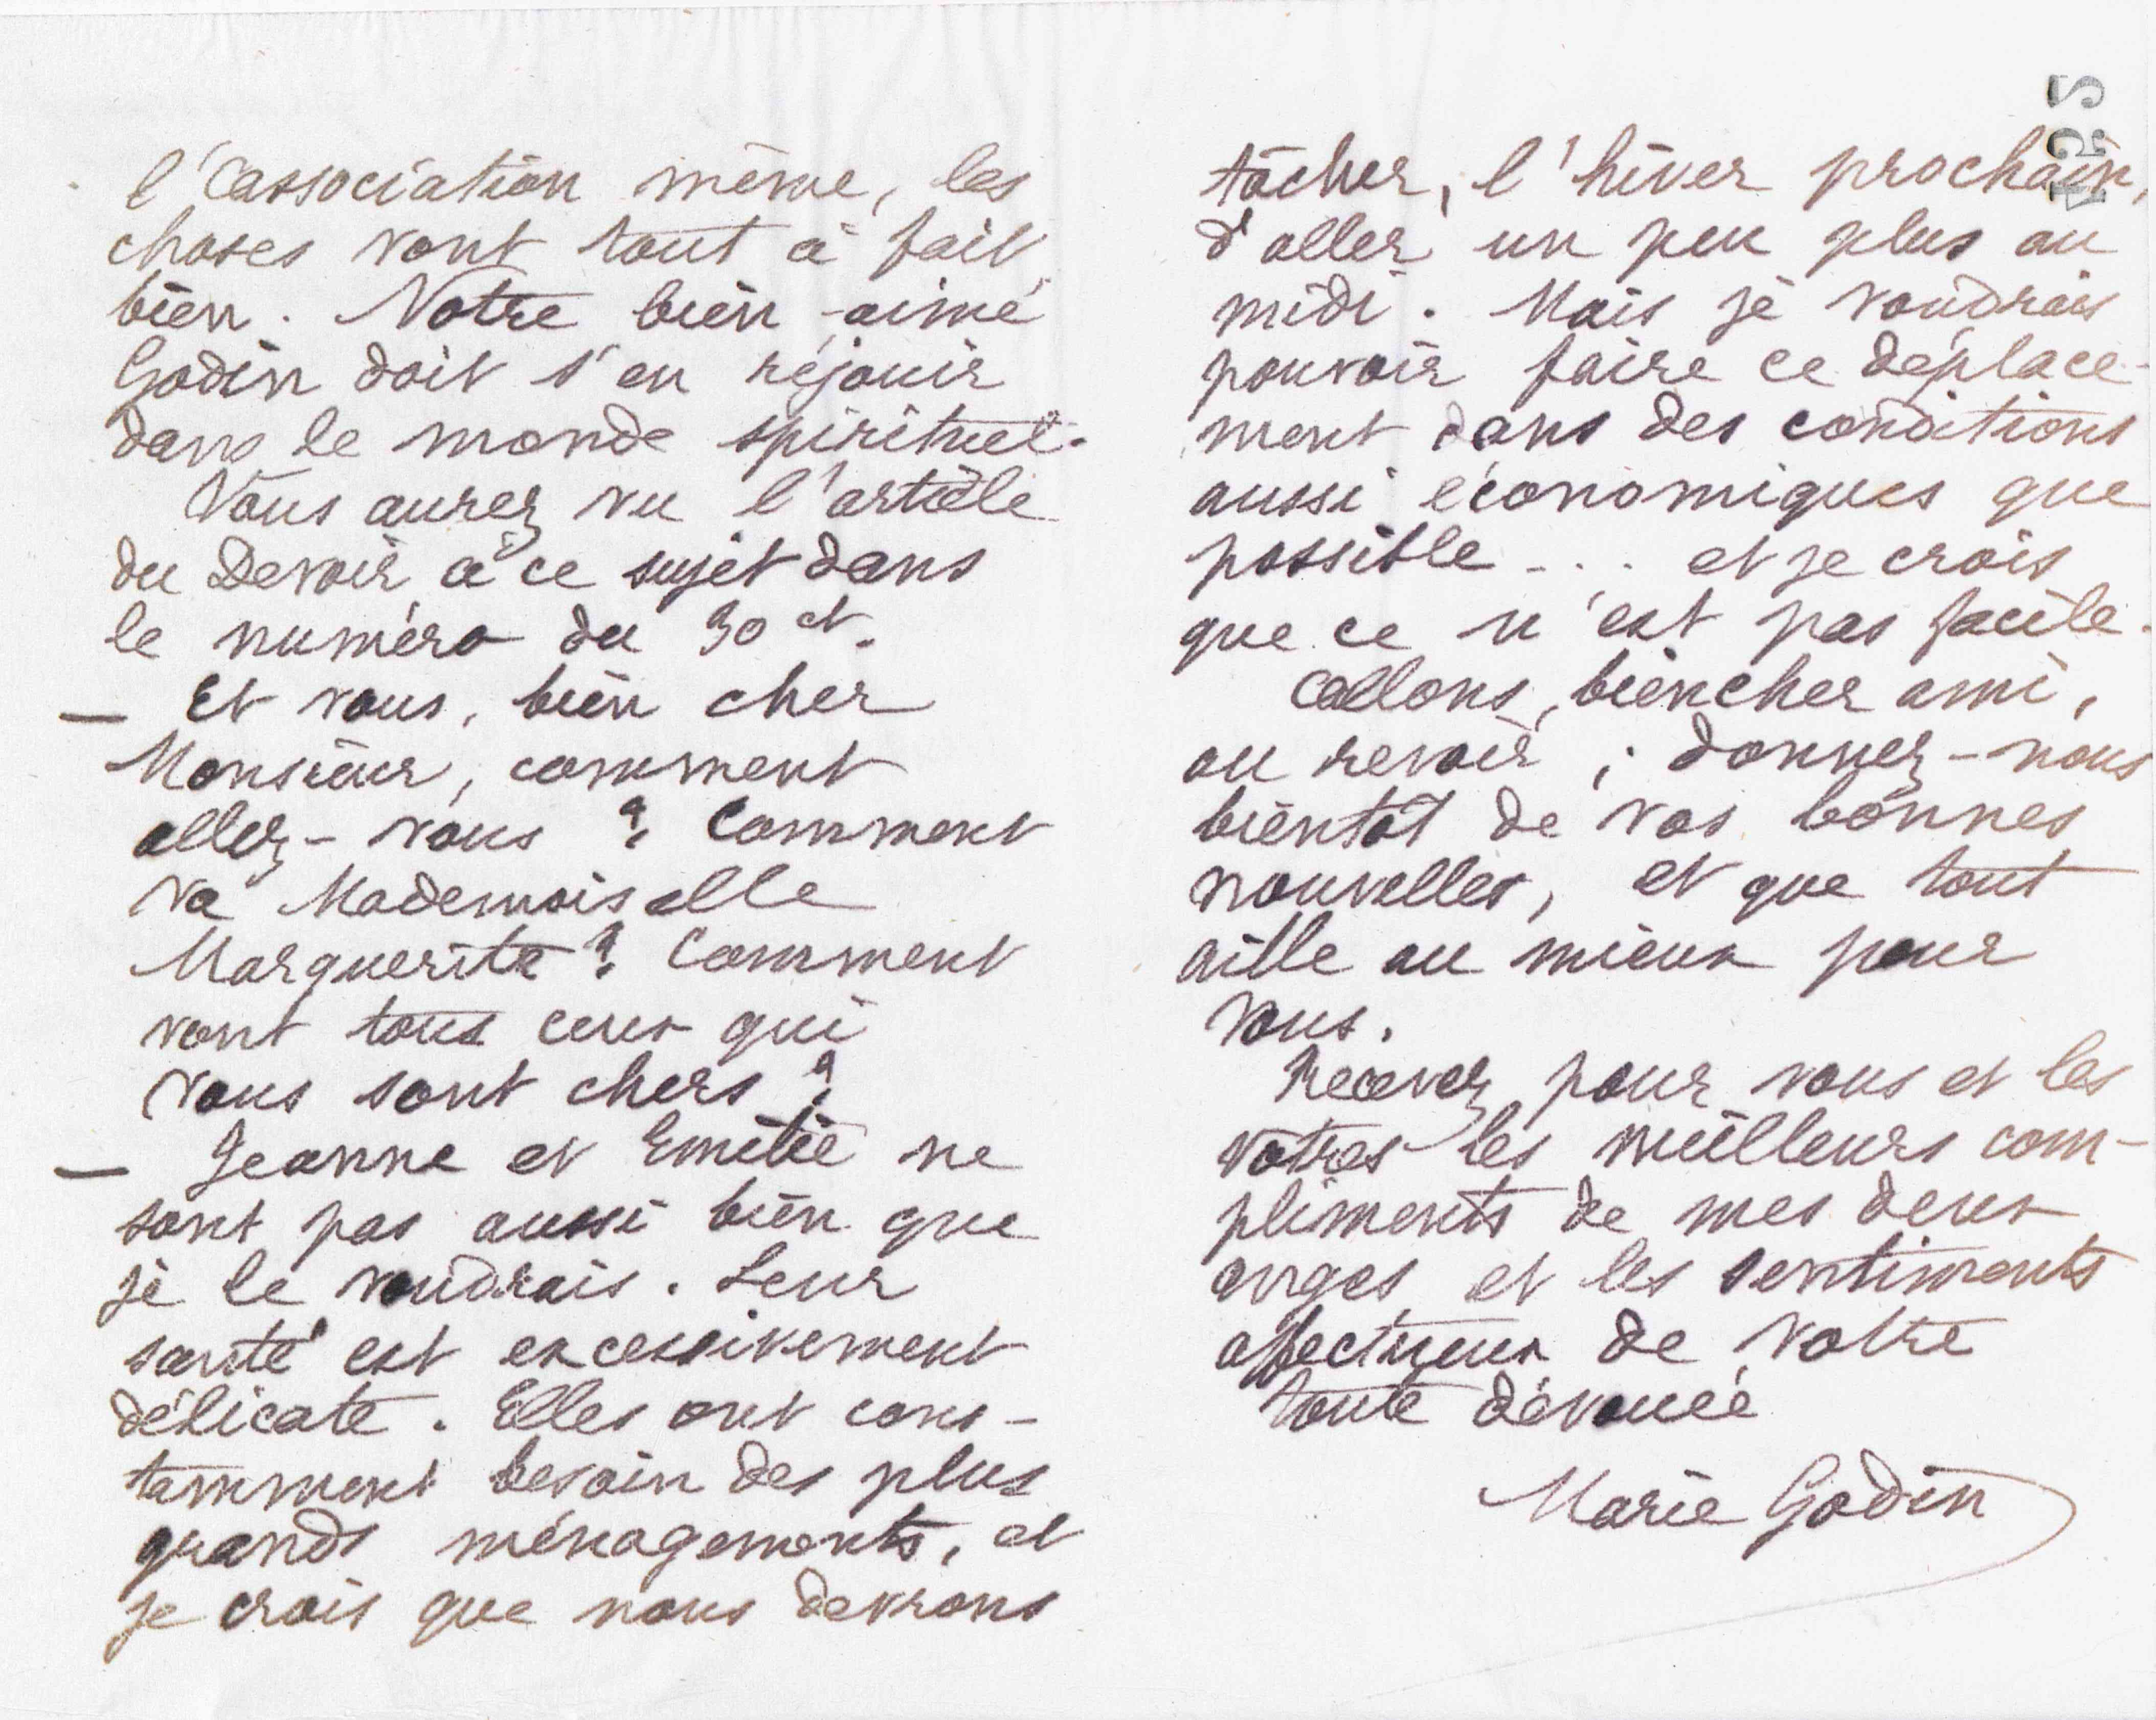 l'Association même, les
choses vont tout à fait
bien. Notre bien-aimé
Godin doit s'en réjouir
dans le monde spirituel.
Vous aurez vu l'article
du Devoir à ce sujet dans
le numéro du 30 ct.
— Et vous, bien cher
Monsieur, comment
allez-vous ? Comment
va Mademoiselle
Marguerite ? Comment
vont tous ceux qui
vous sont chers ?
— Jeanne et Emilie ne
sont pas aussi bien que
je le voudrais. Leur
santé est excessivement
délicate. Elles ont cons-
tamment besoin des plus
grands ménagements, et
je crois que nous devrons
tâcher, l'hiver prochain,
d'aller un peu plus au
midi. Mais je voudrais
pouvoir faire ce déplace-
ment dans des conditions
aussi économiques que
possible... et je crois
que ce n'est pas facile.
Allons, bien cher ami,
au revoir ; donnez-nous
bientôt de vos bonnes
nouvelles, et que tout
aille au mieux pour
vous.
Recevez pour vous et les
vôtres les meilleurs com-
pliments de mes deux
anges et les sentiments
affectueux de votre
toute dévouée
Marie Godin